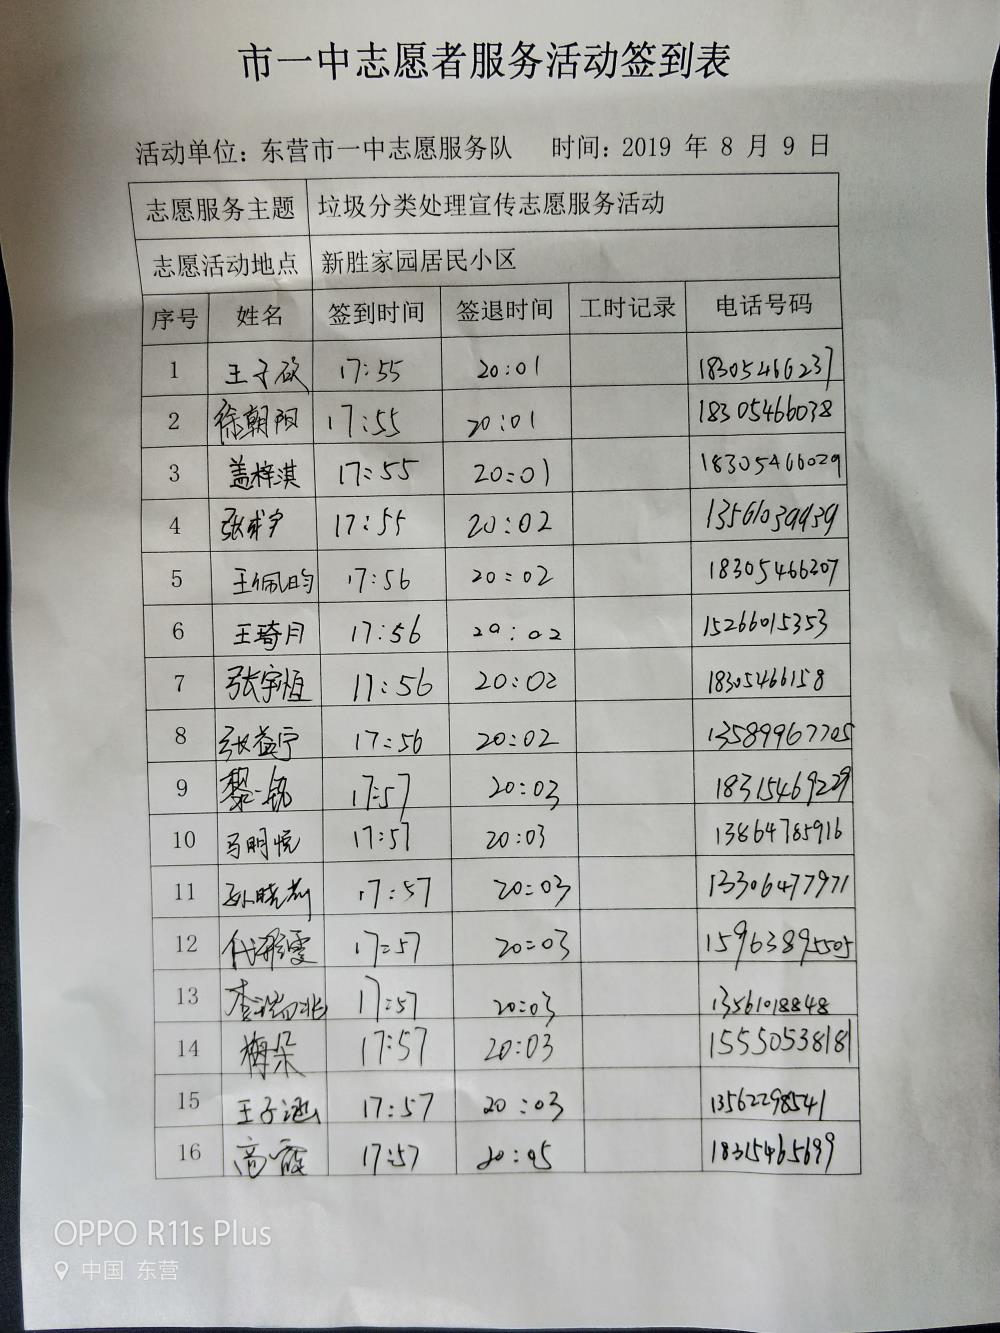 市一中志愿者服务活动签到表
活动单位：东营市一中志愿服务队 时间：2019 年 8 月 9 日
志愿服务主题 垃圾分类处理宣传志愿服务活动
志愿活动地点 新胜家园居民小区
序号 姓名 签到时间 签退时间 工时记录 电话号码
1 王子硕 17:55 20:01 18305466237
2 徐朝阳 17:55 20:01 18305466038
3 盖梓淇 17:55 20:01 18305466029
4 17:55 20:02 13561039939
5 王佩昀 17:56 20:02 18305466307
6 王琦月 17:56 20:02 15266015353
7 张宇恒 17:56 20:02 18305466158
8 张益宁 17:56 20:02 13589967705
9 17:57 20:03 18315469229
10 马明悦 17:57 20:03 13864785916
11 孙晓莉 17:57 20:03 13306477971
12 17:57 20:03 15963895505
13 17:57 20:03 13561018848
14 梅朵 17:57 20:03 15550538181
15 王子涵 17:57 20:03 13562298541
16 高霞 17:57 20:05 18315465699
OPPO R11s Plus
中国 东营